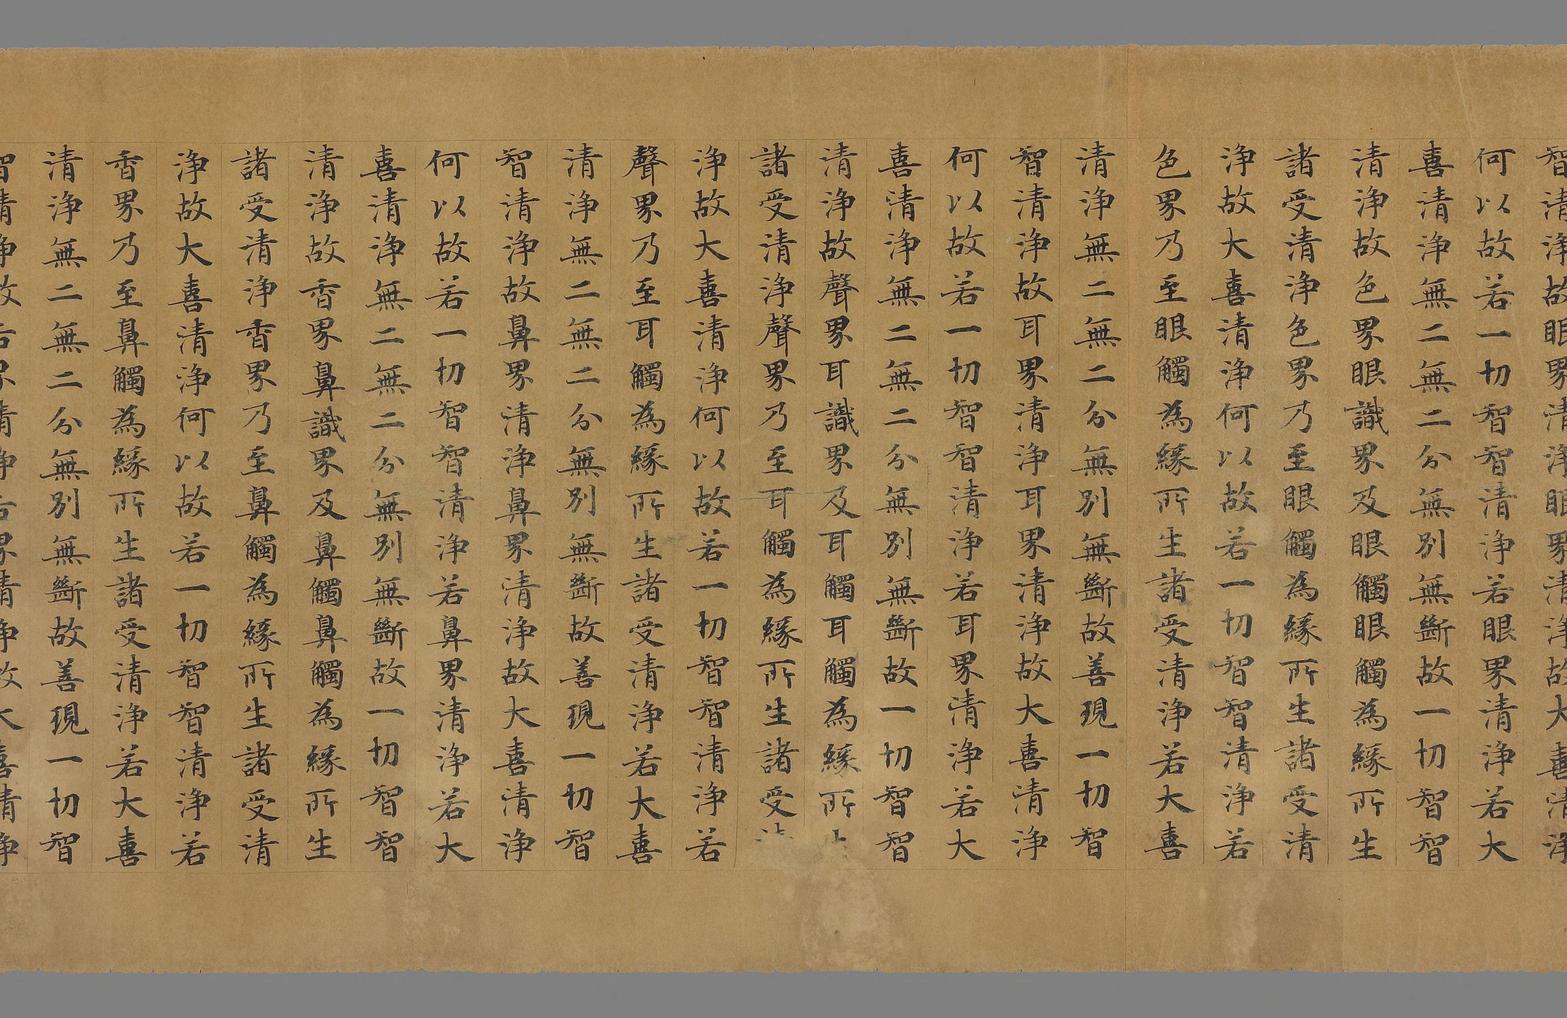 智清浄故眼界清浄眼界清浄故大喜清浄
何以故若一切智智清浄若眼界清浄若大
喜清浄無二無二分無別無斷故一切智智
清浄故色界眼識界及眼觸眼觸為緣所生
諸受清浄色界乃至眼觸為緣所生諸受清
浄故大喜清浄何以故若一切智智清浄若
色界乃至眼觸為緣所生諸受清浄若大喜
清浄無二無二分無別無斷故善現一切智
智清浄故耳界清浄耳界清浄故大喜清浄
何以故若一切智智清浄若耳界清浄若大
喜清浄無二無二分無別無斷故一切智智
清浄故聲界耳識界及耳觸耳觸為緣所
諸受清浄聲界乃至耳觸為緣所生諸受
浄故大喜清浄何以故若一切智智清浄若
聲界乃至耳觸為緣所生諸受清浄若大喜
清浄無二無二分無別無斷故善現一切智
智清浄故鼻界清浄鼻界清浄故大喜清浄
何以故若一切智智清浄若鼻界清浄若大
喜清浄無二無二分無別無斷故一切智智
清浄故香界鼻識界及鼻觸鼻觸為緣所生
諸受清浄香界乃至鼻觸為緣所生諸受清
浄故大喜清浄何以故若一切智智清浄若
香界乃至鼻觸為緣所生諸受清浄若大喜
清浄無二無二分無別無斷故善現一切智
智清浄故舌界清浄舌界清浄故大喜清浄